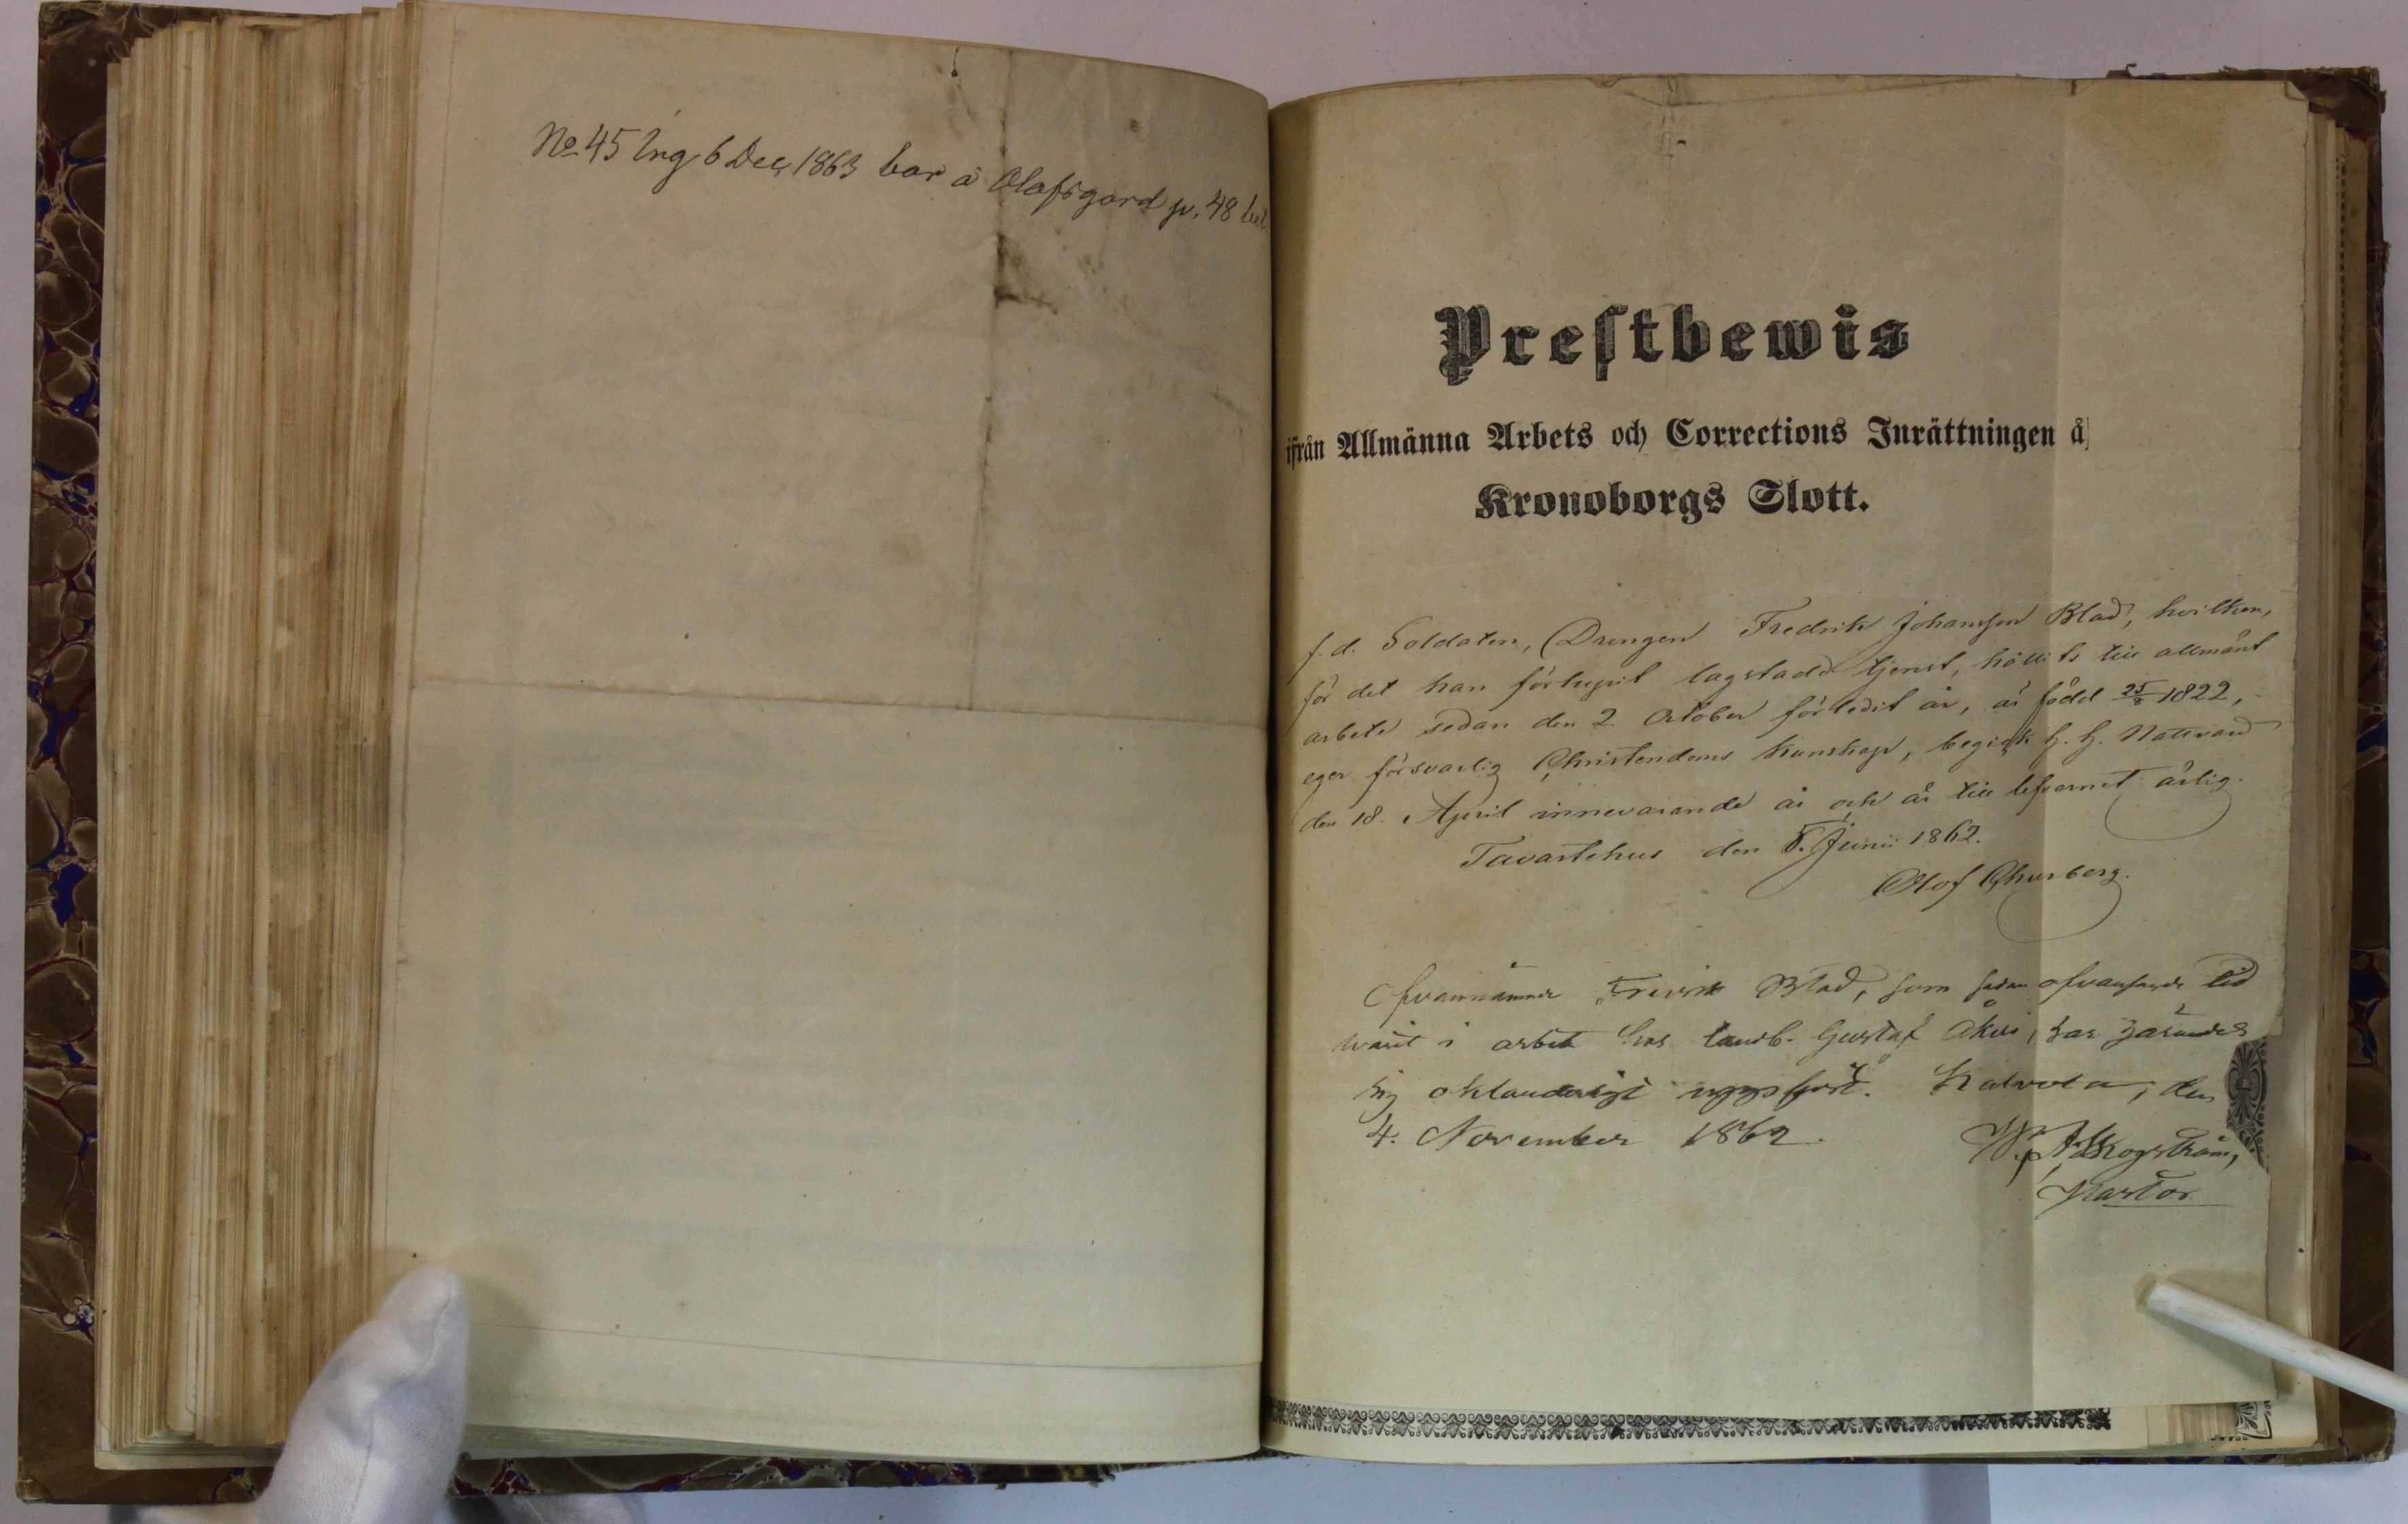 No 45 Ing 6 Dec, 1863 bor å Olofsgård p. 48
Prestbewis
ifrån Allmänna Arbets och Corrections Inrättningen å
Kronoborgs Slott.
f. d. Soldaten, Drengen Fredrik Johansson Blad, hvilken,
för det han förlupit lagstadd tjenst, hållits till allmänt
arbete sedan den 2 October förledit år, är född 25/8 1822,
eger försvarlig Christendoms kunskap, begick H. H. Nattvard
den 18. April innevarande år och är till lefvernet ärlig.
Tavastehus den 5. Junii 1862.
Olof Churberg.
Ofvannämnde Fredrik Blad, som sedan ofvansagde tid
warit i arbete hos landb. Gustaf har
sig oklanderligt uppfört. Kalvola, den
4. November 1862.
Skogström,
Pastor